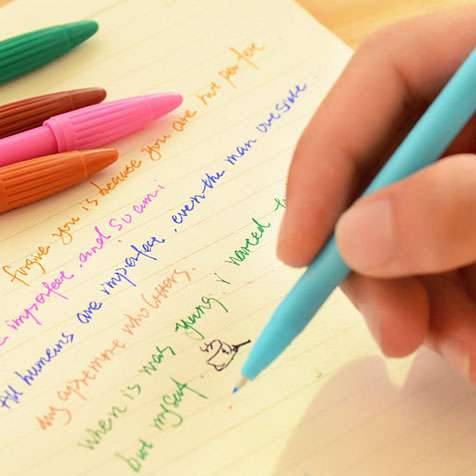 forgive you is because you are not perfe
imperfect. and so am i
All humans are imperfect, even the man outside
my apartment who litters.
when is was young, i wanted t
but myself.